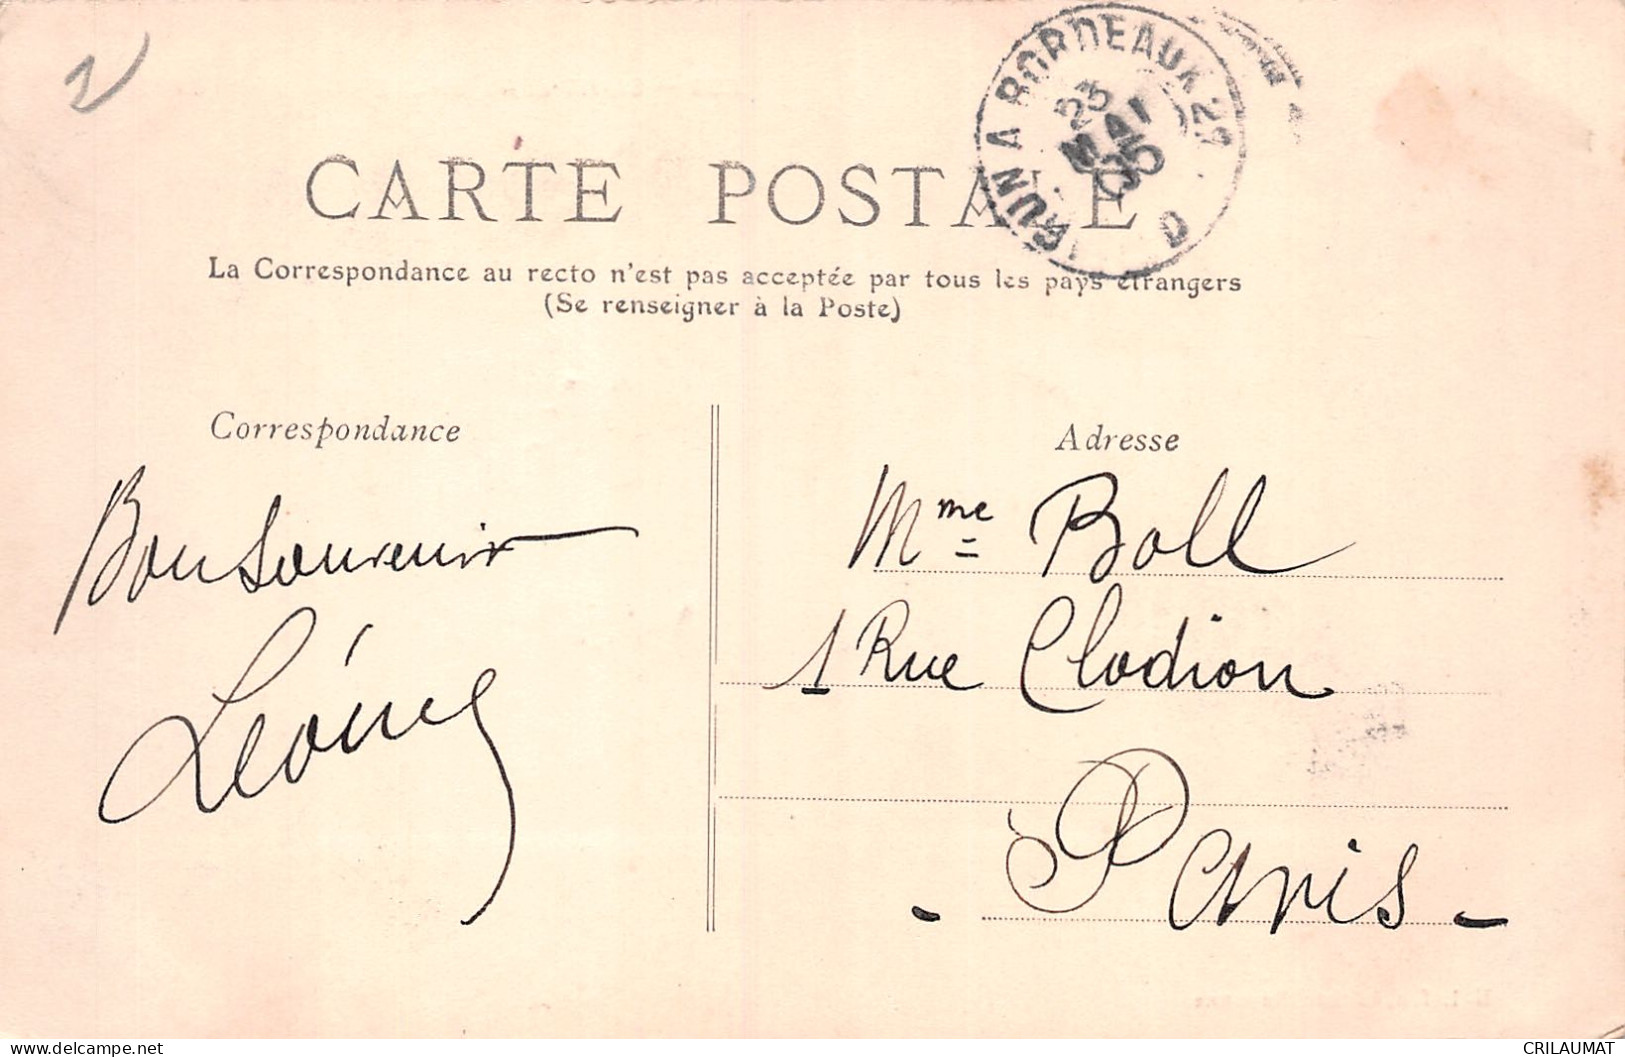 2
IRUN A BORDEAUX 2°
25
MAI
05
CARTE POSTALE
La Correspondance au recto n'est pas acceptée par tous les pays étrangers
(Se renseigner à la Poste)
Correspondance
Bon Souvenir
Adresse
Mme Boll
1 Rue Clodion
- Paris -
CRILAUMAT